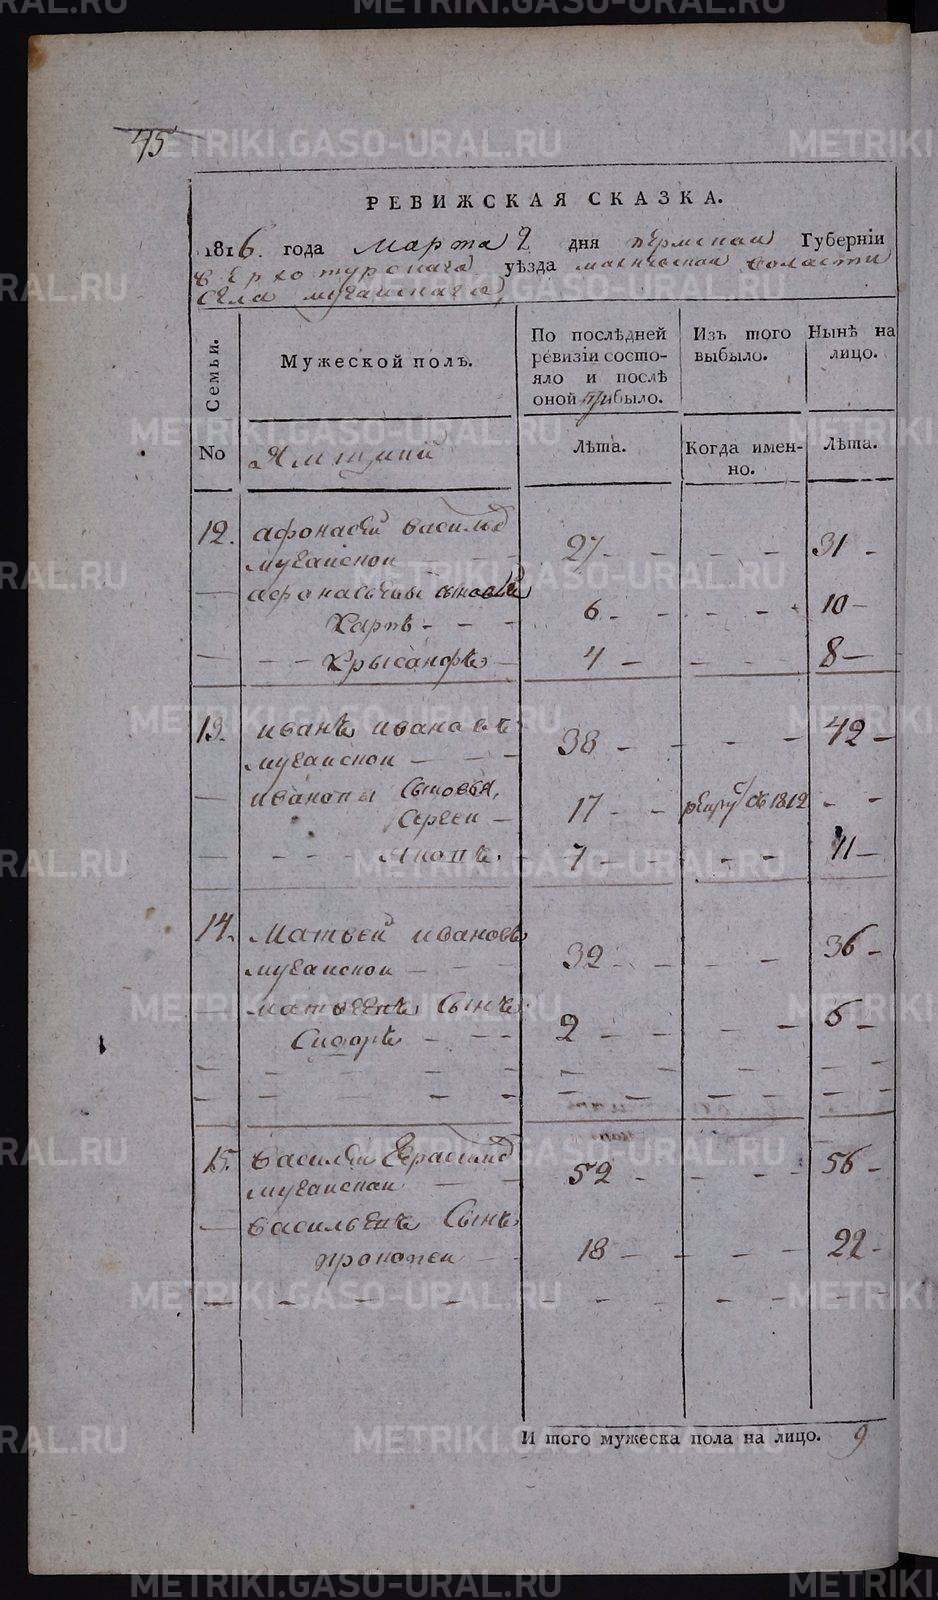 45
РЕВИЖСКАЯ СКАЗКА.
1816. года марта 9 дня пермскаи Губерніи
верхотурскага уѣзда волости
села мугаискаго
Семьи.
Мужеской полъ.
По послѣдней
ревизіи состо-
яло и послѣ
оной прибыло.
Изъ того
выбыло.
Нынѣ на
лицо.
No
Ямщики
Лѣта.
Когда имен-
но.
Лѣта.
12. афонасеи васильев
мугаискои - - - 27 - - - - 31 -
- афонасьевы сыновья
Харпъ - - - 6 - - - - - 10 -
- - - Хрысанфъ - 4 - - - - 8 -
13. иванъ ивановъ
мугаискои - - - 38 - - - - 42 -
- ивановы сыновья,
Сергеи - 17 - - рекру въ 1812 - -
- - - - Яковъ - 7 - - - - 11 -
14. Матвеи ивановъ
мугаискои - - - 32 - - - - 36 -
- матвеевъ Сынъ
Сидоръ - - - 2 - - - - 6 -
- - - - - - - - - - - -
- - - - - - - - - - - -
15. Василеи Герасимов
мугаискаи - - 52 - - - - 56 -
- васильевъ Сынъ
прокопеи - 18 - - - - 22 -
- - - - - - - - - - -
И того мужеска пола на лицо. 9
METRIKI.GASO-URAL.RU